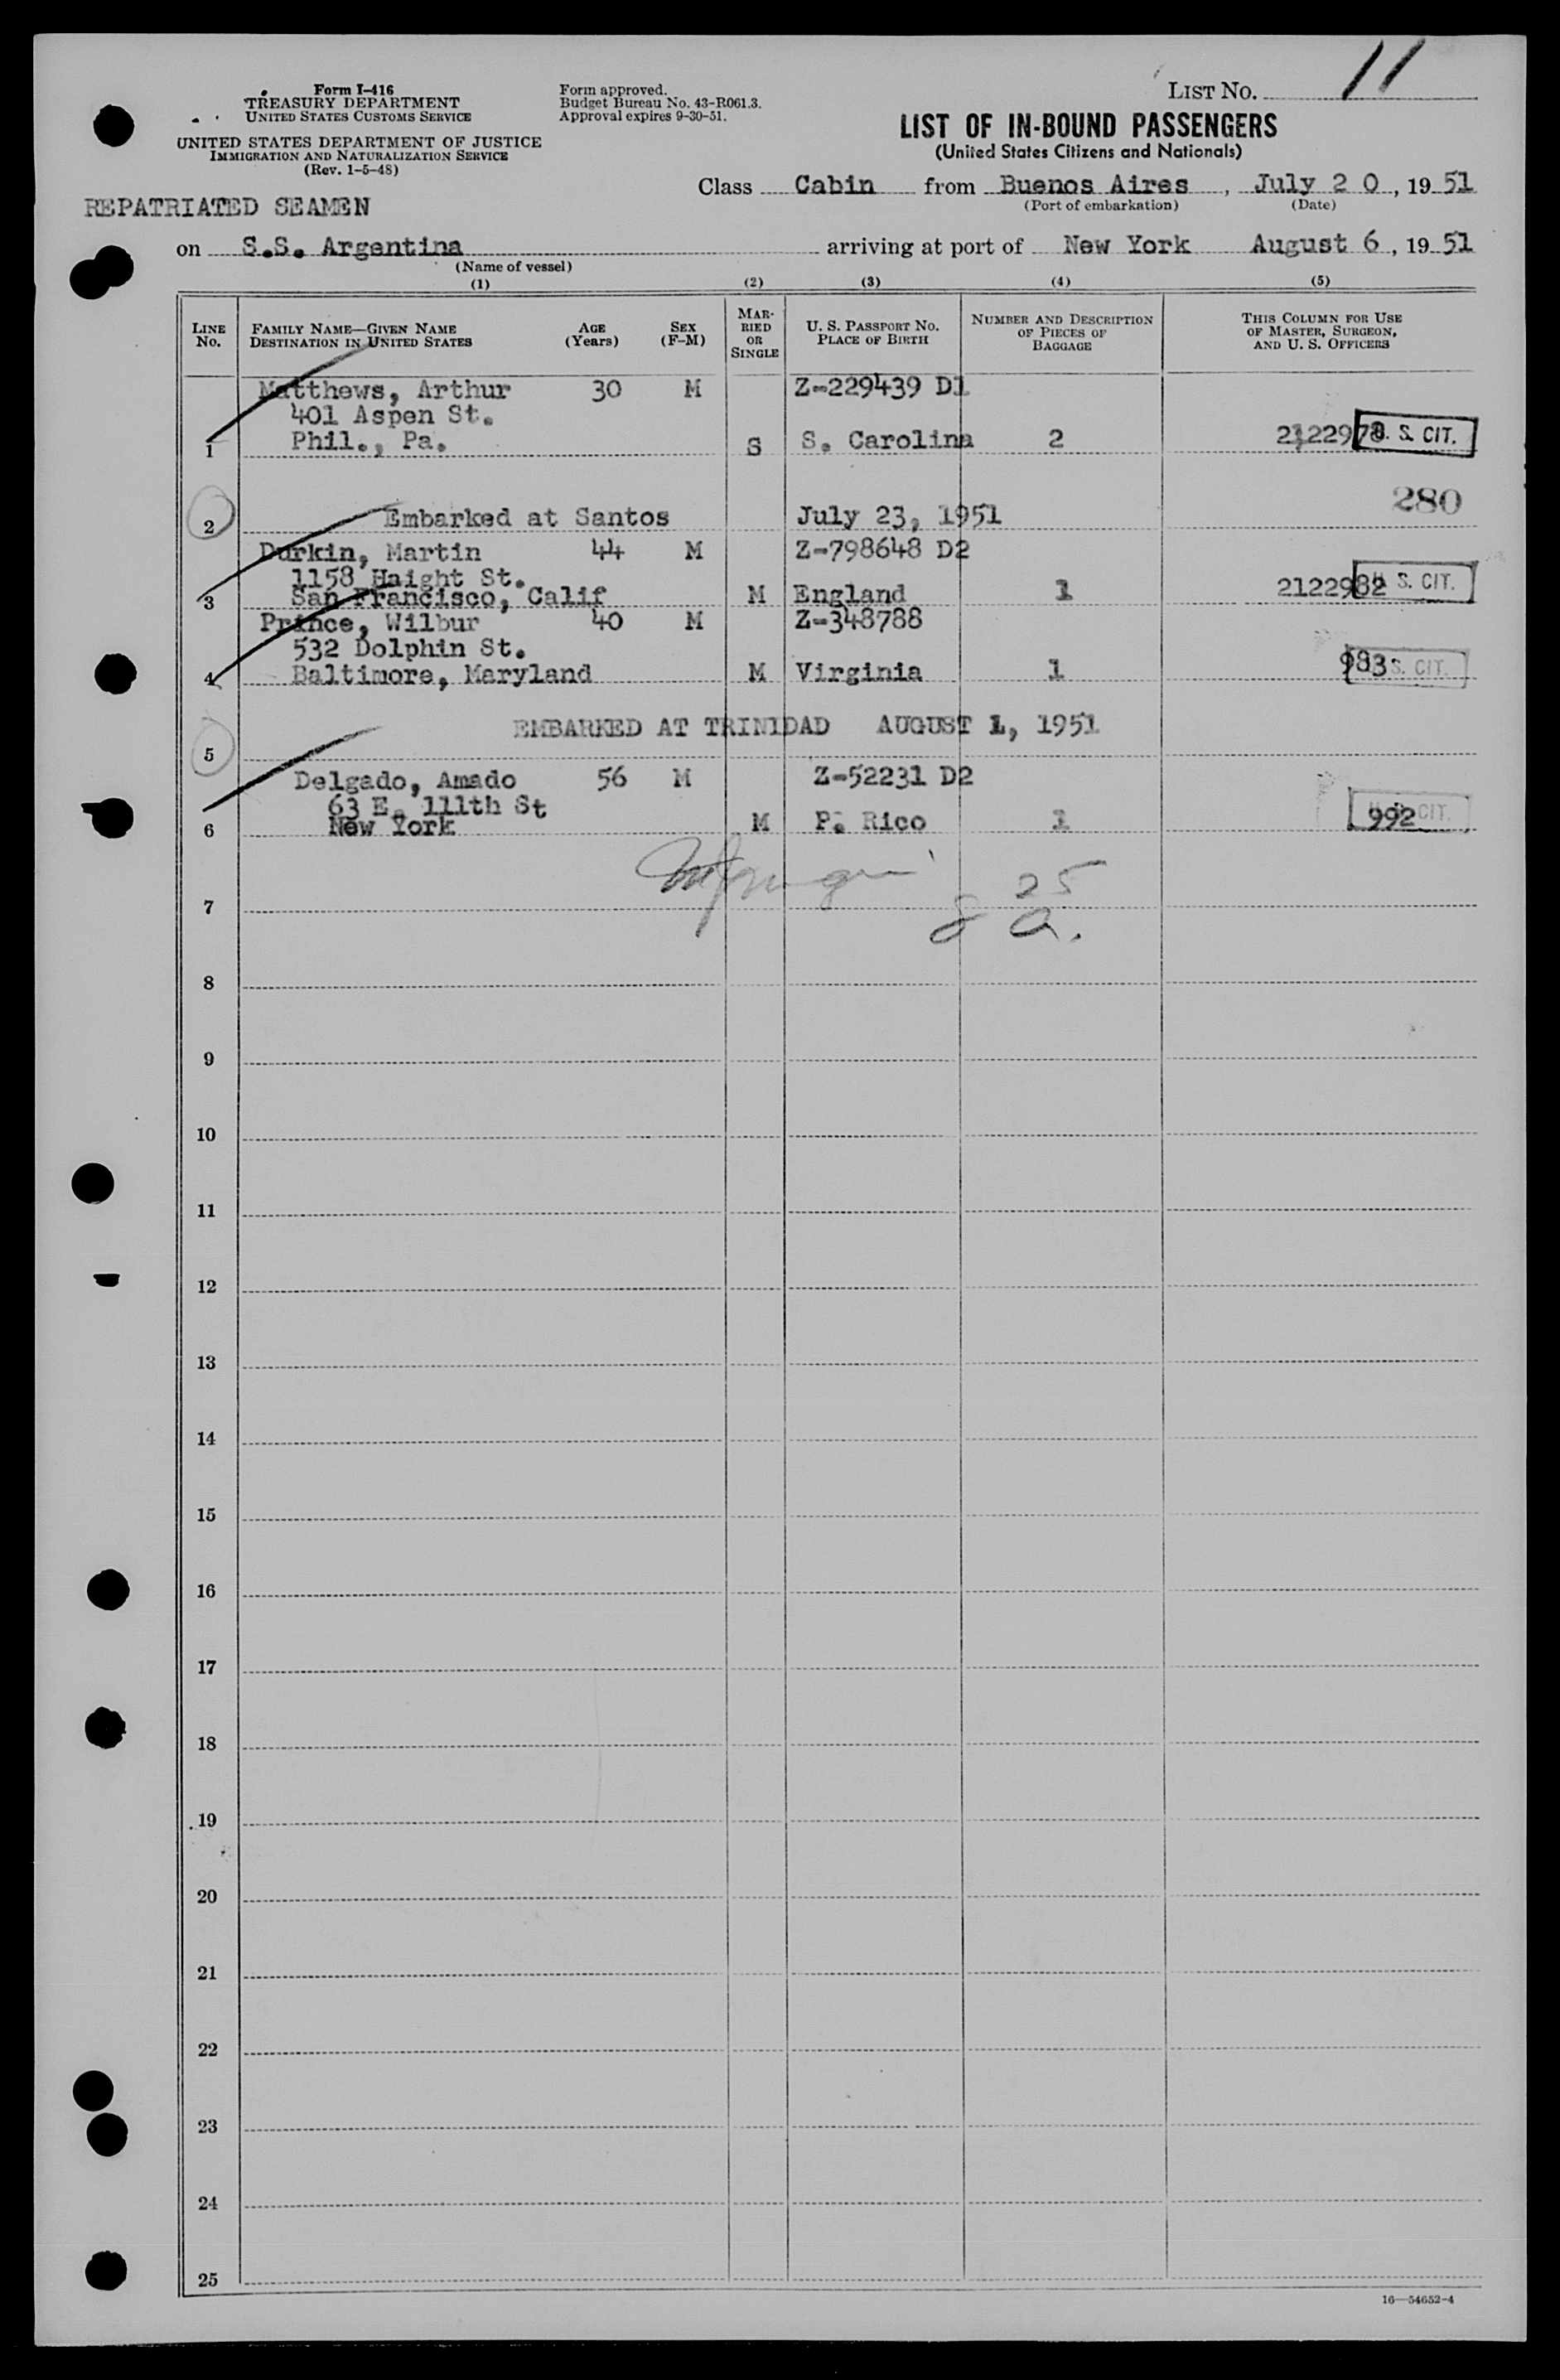 11
Form I-416
TREASURY DEPARTMENT
UNITED STATES CUSTOMS SERVICE
UNITED STATES DEPARTMENT OF JUSTICE
IMMIGRATION AND NATURALIZATION SERVICE
(Rev. 1-5-48)
Form approved.
Budget Bureau No. 43-R061.3.
Approval expires 9-30-51.
LIST NO.
LIST OF IN-BOUND PASSENGERS
(United States Citizens and Nationals)
Class Cabin from Buenos Aires, July 2 0, 1951
(Port of embarkation) (Date)
REPATRIATED SEAMEN
on S.S. Argentina arriving at port of New York August 6, 1951
(Name of vessel)
(1) (2) (3) (4) (5)
LINE No.
FAMILY NAME—GIVEN NAME
DESTINATION IN UNITED STATES
AGE (Years)
SEX (F-M)
MAR-
RIED
OR
SINGLE
U. S. PASSPORT NO.
PLACE OF BIRTH
NUMBER AND DESCRIPTION
OF PIECES OF
BAGGAGE
THIS COLUMN FOR USE
OF MASTER, SURGEON,
AND U. S. OFFICERS
Matthews, Arthur 30 M Z-229439 D1
401 Aspen St.
1 Phil., Pa. S S. Carolina 2 U. S. CIT.
280
2 Embarked at Santos July 23, 1951
Durkin, Martin 44 M Z-798648 D2
1158 Haight St.
3 San Francisco, Calif M England 1 2122982 U. S. CIT.
Prince, Wilbur 40 M Z-348788
532 Dolphin St.
4 Baltimore, Maryland M Virginia 1 983 U. S. CIT.
5 EMBARKED AT TRINIDAD AUGUST 1, 1951
Delgado, Amado 56 M Z-52231 D2
63 E. 111th St
6 New York M P. Rico 1 992 U. S. CIT.
25
7
8
9
10
11
12
13
14
15
16
17
18
19
20
21
22
23
24
25
16—54652-4